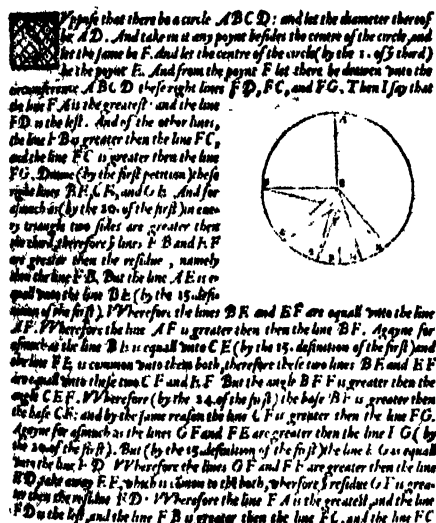 Vppose that there be a circle A B C D: and let the diameter thereof
be A D. And take in it any poynt besides the centre of the circle, and
let the same be F. And let the centre of the circle (by the 1. of ẏ third)
be the poynt E. And from the poynt F let there be drawen vnto the
circumference A B C D these right lines F D, F C, and F G. Then I say that
the line F A is the greatest: and the line
F D is the lest. And of the other lines,
the line F B is greater then the line F C,
and the line F C is greater then the line
F G. Drawe (by the first peticion) these
right lines B E, C E, and G E. And for
asmuch as (by the 20. of the first) in eue-
ry triangle two sides are greater then
the third, therefore ẏ lines E B and E F
are greater then the residue, namely
then the line F B. But the line A E is e-
quall vnto the line B E (by the 15. defi-
nition of the first). Wherefore the lines B E and E F are equall vnto the line
A F. Wherefore the line A F is greater then then the line B F. Agayne for
asmuch as the line B E is equall vnto C E (by the 15. definition of the first) and
the line F E is common vnto them both, therefore these two lines B E and E F
are equall vnto these two C E and E F. But the angle B E F is greater then the
angle C E F. Wherefore (by the 24. of the first) the base B F is greater then
the base C F: and by the same reason the line C F is greater then the line F G.
Agayne for asmuch as the lines G F and F E are greater then the line E G (by
the 20 of the first). But (by the 15. definition of the first) the line E G is equall
vnto the line E D. Wherefore the lines G F and F E are greater then the line
E D, take away E F, which is common to thē both, wherfore ẏ residue G F is grea-
ter then the residue F D. Wherefore the line F A is the greatest, and the line
F D is the lest, and the line F B is greater then the line F C, and the line F C